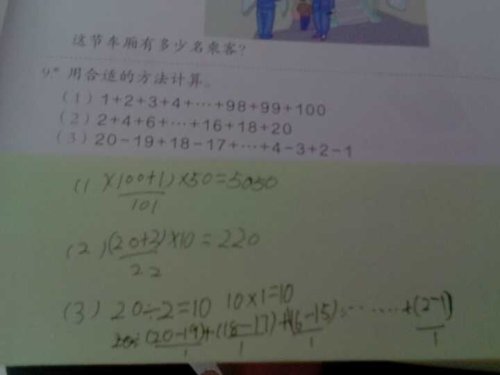 这节车厢有多少名乘客?
9* 用合适的方法计算。
(1) 1+2+3+4+…+98+99+100
(2) 2+4+6+…+16+18+20
(3) 20-19+18-17+…+4-3+2-1
(1) (100+1)×50=5050
101
(2) (20+2)×10=220
22
(3) 20÷2=10 10×1=10
(20-19)+(18-17)+(16-15)+……+(2-1)
1 1 1 1